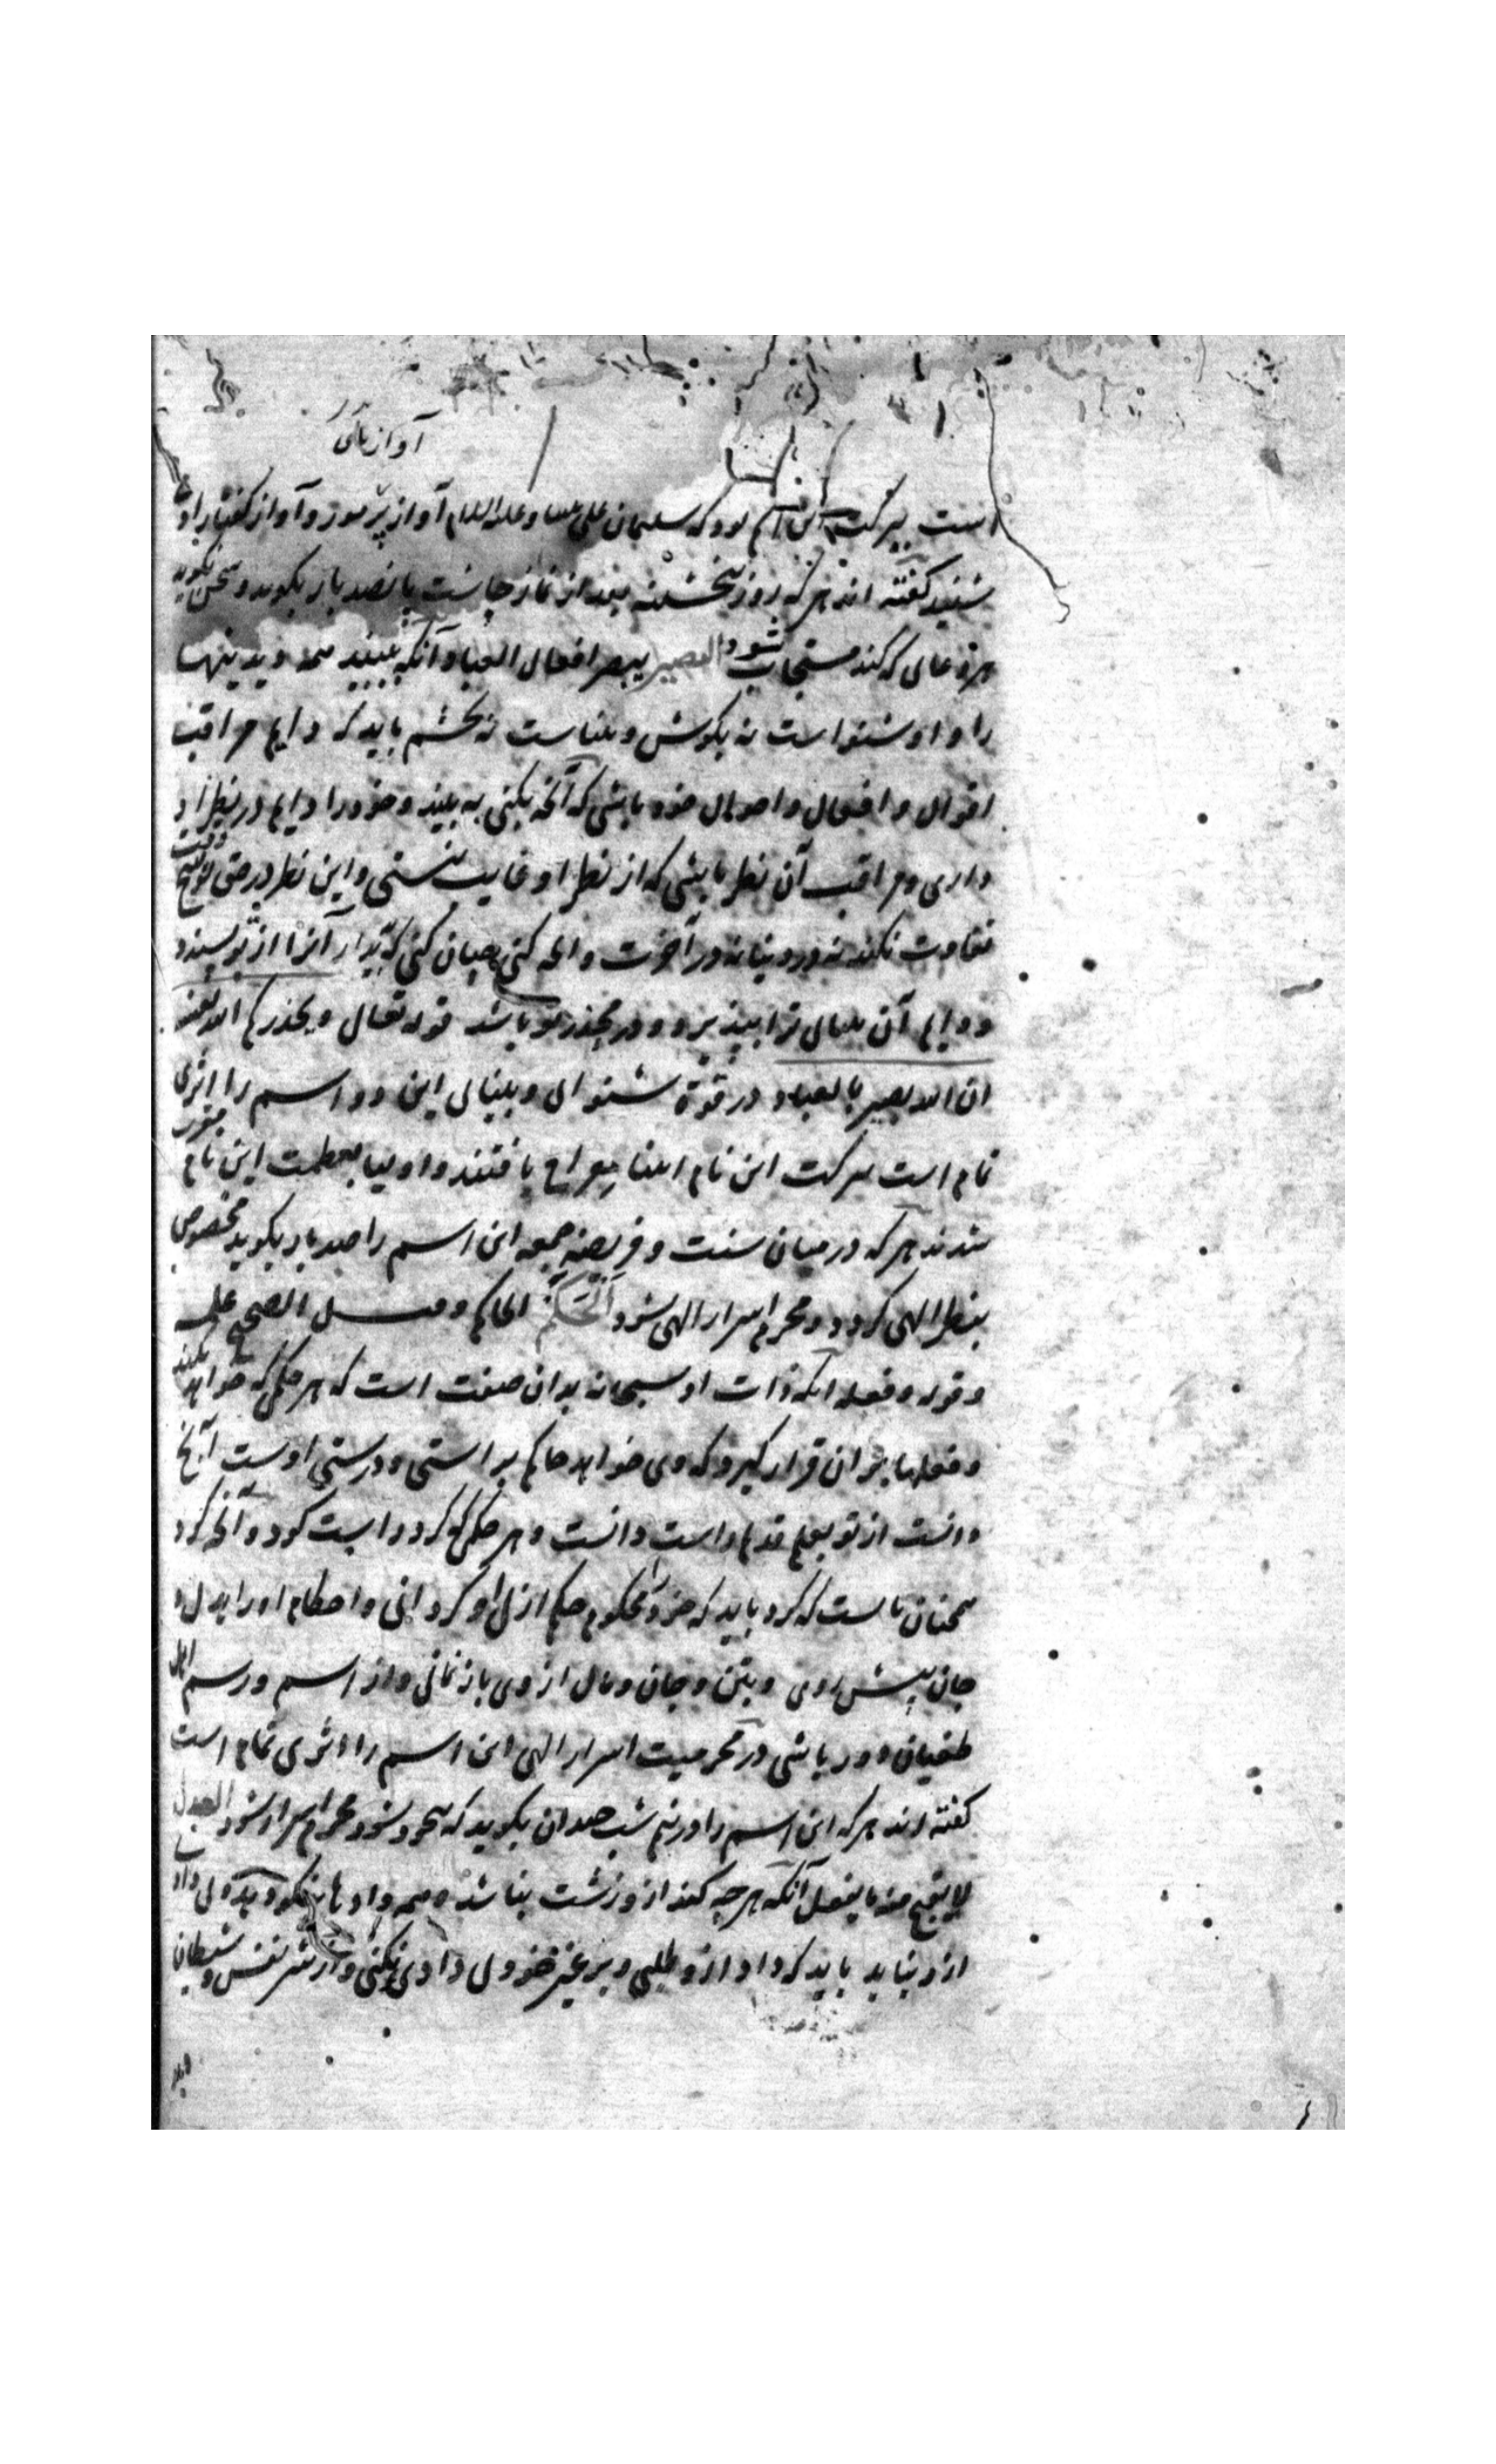 آواز پای
است ببرکت این اسم بود که سلیمان علی نبینا و علیه السلام آواز پر مور و آواز گفتار او
شنید گفته اند هر که روز پنجشنبه بعد از نماز چاشت پانصد بار بگوید و سخن نگوید
هر دعایی که کند مستجاب شود البصیر یبصر افعال العباد آنکه ببیند همه دیدنیها
را و او شنواست نه بگوش و بیناست نه بچشم باید که دایم مراقب
اقوال و افعال و احوال خود باشی که آنچه بکنی به بیند و خود را دایم در نظر او
داری و مراقب آن نظر باشی که از نظر او غایب نیستی و این نظر در حق تو هیچ وقت
تفاوت نکند نه در دنیا نه در آخرت و آنچه کنی چنان کنی که آنرا از تو پسندد
و دایم آن بینایی ترا بیند قوله تعالی و یحذرکم الله نفسه
ان الله بصیر بالعباد در قوة شنوایی و بینایی این دو اسم را اثری
تمام است ببرکت این نام انبیا معراج یافتند و اولیا بعظمت این نام مقرب
شدند هر که در میان سنت و فریضه جمعه این اسم را صد بار بگوید مخصوص
بنظر الهی گردد و محرم اسرار الهی شود الحکم الحاکم و قیل الصحیح علمه
و قوله و فعله آنکه ذات او سبحانه بدان صفت است که هر حکمی که خواهد بکند
و فعلها بر آن قرار گیرد که وی خواهد حاکم براستی و درستی اوست آنچ
دانست از تو بعلم قدیم راست دانست و هر حکمی که کرد راست کرد و آنچه کرد
همچنان بایست که کرد باید که خود را محکوم حکم ازلی او گردانی و احکام او را بدل و
جان پیش روی و بتن و جان و مال از وی باز نمانی و از اسم و رسم اهل
طغیان دور باشی در محرمیت اسرار الهی این اسم را اثری تمام است
گفته اند هر که این اسم را در نیم شب چندان بگوید که بیخود شود محرم اسرار شود العدل
لا یقبح منه ما یفعل آنکه هر چه کند ازو زشت نباشد و همه دادها نیکو دهد
ازو نیاید باید که داد ازو طلبی و بر غیر خود و از شر نفس و شیطان